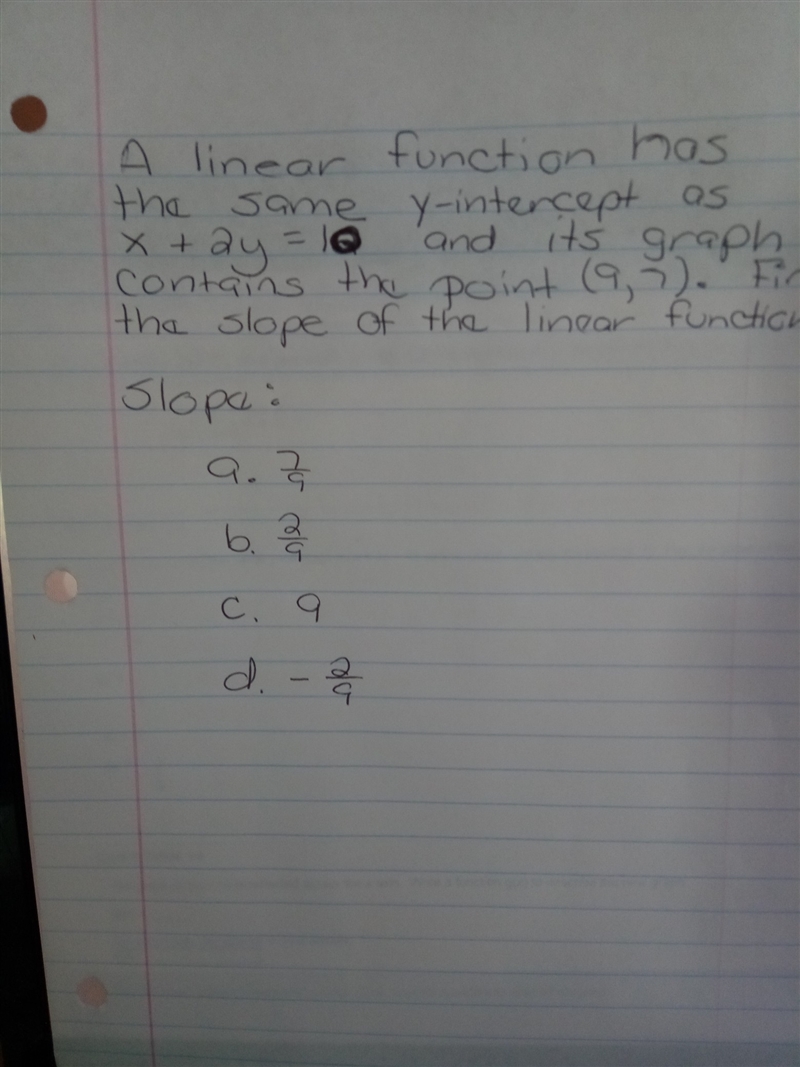 A linear function has
the same y-intercept as
x + 2y = 10 and its graph
contains the point (9,7). Fin
the slope of the linear function
Slope:
a. 7/9
b. 2/9
c. 9
d. - 2/9